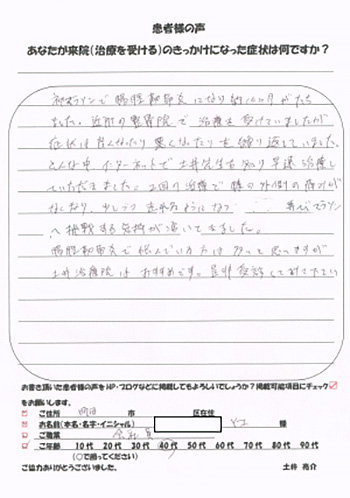 患者様の声
あなたが来院(治療を受ける)のきっかけになった症状は何ですか?
初マラソンで腸脛靭帯炎になり約10ヶ月がたち
ました。近所の整骨院で治療を受けていましたが
症状は良くなったり悪くなったりを繰り返していました。
そんな中、インターネットで土井先生を知り早速治療し
ていただきました。2回の治療で膝の外側の痛みが
なくなり、少しづつ走れるようになって 再びマラソン
へ挑戦する気持が湧いてきました。
腸脛靭帯炎で悩んでいる方は多いと思いますが
土井治療院はおすすめです。是非受診してみて下さい
お書き頂いた患者様の声をHP・ブログなどに掲載してもよろしいでしょうか?掲載可能項目にチェック
をお願いします。
ご住所 町田 市 区在住
お名前(本名・名字・イニシャル) Y.I 様
ご職業 会社員
ご年齢 10代 20代 30代 40代 50代 60代 70代 80代 90代
(○で囲ってください)
ご協力ありがとうございました。 土井 亮介